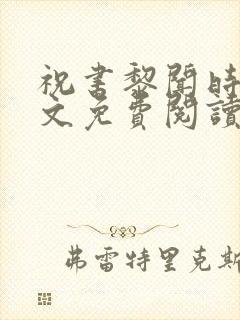 祝書黎聞時
文免費閱讀
弗雷特里克斯